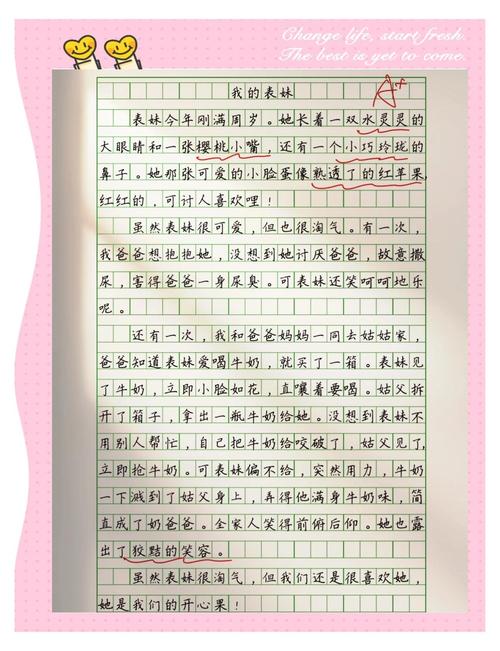 Change life, start fresh.
The best is yet to come.
我的表妹
A+
表妹今年刚满周岁。她长着一双水灵灵的
大眼睛和一张樱桃小嘴，还有一个小巧玲珑的
鼻子。她那张可爱的小脸蛋像熟透了的红苹果，
红红的，可讨人喜欢哩！
虽然表妹很可爱，但也很淘气。有一次，
我爸爸想抱抱她，没想到她讨厌爸爸，故意撒
尿，害得爸爸一身尿臭。可表妹还笑呵呵地乐
呢。
还有一次，我和爸爸妈妈一同去姑姑家，
爸爸知道表妹爱喝牛奶，就买了一箱。表妹见
了牛奶，立即小脸如花，直嚷着要喝。姑父拆
开了箱子，拿出一瓶牛奶给她。没想到表妹不
用别人帮忙，自己把牛奶给咬破了，姑父见了，
立即抢牛奶。可表妹偏不给，突然用力，牛奶
一下溅到了姑父身上，弄得他满身牛奶味，简
直成了奶爸爸。全家人笑得前俯后仰。她也露
出了狡黠的笑容。
虽然表妹很淘气，但我们还是很喜欢她，
她是我们的开心果！